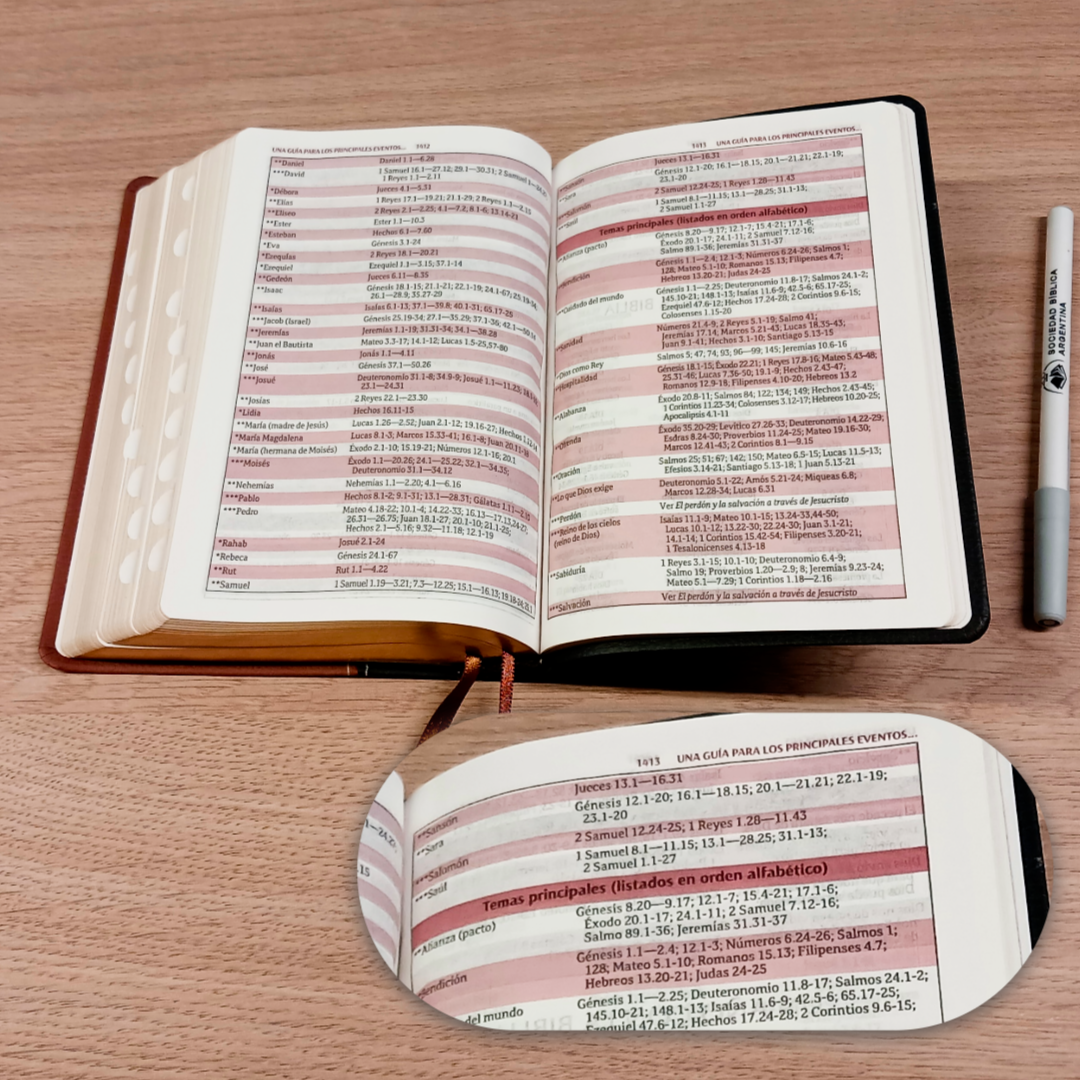 UNA GUÍA PARA LOS PRINCIPALES EVENTOS... 1412
**Daniel Daniel 1.1—6.28
***David 1 Samuel 16.1—27.12; 29.1—30.31; 2 Samuel
1 Reyes 1.1—2.11
*Débora Jueces 4.1—5.31
**Elías 1 Reyes 17.1—19.21; 21.1-29; 2 Reyes 1.1—2.15
**Eliseo 2 Reyes 2.1—2.25; 4.1—7.2; 8.1-6; 13.14-21
**Ester Ester 1.1—10.3
*Esteban Hechos 6.1—7.60
*Eva Génesis 3.1-24
*Ezequías 2 Reyes 18.1—20.21
*Ezequiel Ezequiel 1.1—3.15; 37.1-14
**Gedeón Jueces 6.11—8.35
**Isaac Génesis 18.1-15; 21.1-21; 22.1-19; 24.1-67; 25.19-34;
26.1—28.9; 35.27-29
**Isaías Isaías 6.1-13; 37.1—39.8; 40.1-31; 65.17-25
***Jacob (Israel) Génesis 25.19-34; 27.1—35.29; 37.1-36; 42.1—50.14
**Jeremías Jeremías 1.1-19; 31.31-34; 34.1—38.28
**Juan el Bautista Mateo 3.3-17; 14.1-12; Lucas 1.5-25,57-80
*Jonás Jonás 1.1—4.11
**José Génesis 37.1—50.26
***Josué Deuteronomio 31.1-8; 34.9-9; Josué 1.1—11.23;
23.1—24.31
**Josías 2 Reyes 22.1—23.30
*Lidia Hechos 16.11-15
**María (madre de Jesús) Lucas 1.26—2.52; Juan 2.1-12; 19.16-27; Hechos 1.12-14
*María Magdalena Lucas 8.1-3; Marcos 15.33-41; 16.1-8; Juan 20.11-18
*María (hermana de Moisés) Éxodo 2.1-10; 15.19-21; Números 12.1-16; 20.1
***Moisés Éxodo 1.1—20.26; 24.1—25.22; 32.1—34.35;
Deuteronomio 31.1—34.12
**Nehemías Nehemías 1.1—2.20; 4.1—6.16
***Pablo Hechos 8.1-2; 9.1-31; 13.1—28.31; Gálatas 1.11—2.15
***Pedro Mateo 4.18-22; 10.1-4; 14.22-33; 16.13—17.13,24-27;
26.31—26.75; Juan 18.1-27; 20.1-10; 21.1-25;
Hechos 2.1—5.16; 9.32—11.18; 12.1-19
*Rahab Josué 2.1-24
*Rebeca Génesis 24.1-67
**Rut Rut 1.1—4.22
**Samuel 1 Samuel 1.19—3.21; 7.3—12.25; 15.1—16.13; 19.18-24;
1413 UNA GUÍA PARA LOS PRINCIPALES EVENTOS...
**Sansón Jueces 13.1—16.31
**Sara Génesis 12.1-20; 16.1—18.15; 20.1—21.21; 22.1-19;
23.1-20
***Salomón 2 Samuel 12.24-25; 1 Reyes 1.28—11.43
***Saúl 1 Samuel 8.1—11.15; 13.1—28.25; 31.1-13;
2 Samuel 1.1-27
Temas principales (listados en orden alfabético)
**Alianza (pacto) Génesis 8.20—9.17; 12.1-7; 15.4-21; 17.1-6;
Éxodo 20.1-17; 24.1-11; 2 Samuel 7.12-16;
Salmo 89.1-36; Jeremías 31.31-37
Bendición Génesis 1.1—2.4; 12.1-3; Números 6.24-26; Salmos 1;
128; Mateo 5.1-10; Romanos 15.13; Filipenses 4.7;
Hebreos 13.20-21; Judas 24-25
*Cuidado del mundo Génesis 1.1—2.25; Deuteronomio 11.8-17; Salmos 24.1-2;
145.10-21; 148.1-13; Isaías 11.6-9; 42.5-6; 65.17-25;
Ezequiel 47.6-12; Hechos 17.24-28; 2 Corintios 9.6-15;
Colosenses 1.15-20
Sanidad Números 21.4-9; 2 Reyes 5.1-19; Salmo 41;
Jeremías 17.14, Marcos 5.21-43; Lucas 18.35-43;
Juan 9.1-41; Hechos 3.1-10; Santiago 5.13-15
Dios como Rey Salmos 5; 47; 74; 93; 96—99; 145; Jeremías 10.6-16
*Hospitalidad Génesis 18.1-15; Éxodo 22.21; 1 Reyes 17.8-16; Mateo 5.43-48;
25.31-46; Lucas 7.36-50; 19.1-9; Hechos 2.43-47;
Romanos 12.9-18; Filipenses 4.10-20; Hebreos 13.2
**Alabanza Éxodo 20.8-11; Salmos 84; 122; 134; 149; Hechos 2.43-45;
1 Corintios 11.23-34; Colosenses 3.12-17; Hebreos 10.20-25;
Apocalipsis 4.1-11
Ofrenda Éxodo 35.20-29; Levítico 27.26-33; Deuteronomio 14.22-29;
Esdras 8.24-30; Proverbios 11.24-25; Mateo 19.16-30;
Marcos 12.41-43; 2 Corintios 8.1—9.15
**Oración Salmos 25; 51; 67; 142; 150; Mateo 6.5-15; Lucas 11.5-13;
Efesios 3.14-21; Santiago 5.13-18; 1 Juan 5.13-21
**Lo que Dios exige Deuteronomio 5.1-22; Amós 5.21-24; Miqueas 6.8;
Marcos 12.28-34; Lucas 6.31
***Perdón Ver El perdón y la salvación a través de Jesucristo
**Reino de los cielos Isaías 11.1-9; Mateo 10.1-15; 13.24-33,44-50;
(reino de Dios) Lucas 10.1-12; 13.22-30; 22.24-30; Juan 3.1-21;
14.1-14; 1 Corintios 15.42-54; Filipenses 3.20-21;
1 Tesalonicenses 4.13-18
**Sabiduría 1 Reyes 3.1-15; 10.1-10; Deuteronomio 6.4-9;
Salmo 19; Proverbios 1.20—2.9; 8; Jeremías 9.23-24;
Mateo 5.1—7.29; 1 Corintios 1.18—2.16
***Salvación Ver El perdón y la salvación a través de Jesucristo
SOCIEDAD BÍBLICA
ARGENTINA
1413 UNA GUÍA PARA LOS PRINCIPALES EVENTOS...
**Sansón Jueces 13.1—16.31
**Sara Génesis 12.1-20; 16.1—18.15; 20.1—21.21; 22.1-19;
23.1-20
***Salomón 2 Samuel 12.24-25; 1 Reyes 1.28—11.43
***Saúl 1 Samuel 8.1—11.15; 13.1—28.25; 31.1-13;
2 Samuel 1.1-27
Temas principales (listados en orden alfabético)
**Alianza (pacto) Génesis 8.20—9.17; 12.1-7; 15.4-21; 17.1-6;
Éxodo 20.1-17; 24.1-11; 2 Samuel 7.12-16;
Salmo 89.1-36; Jeremías 31.31-37
endición Génesis 1.1—2.4; 12.1-3; Números 6.24-26; Salmos 1;
128; Mateo 5.1-10; Romanos 15.13; Filipenses 4.7;
Hebreos 13.20-21; Judas 24-25
del mundo Génesis 1.1—2.25; Deuteronomio 11.8-17; Salmos 24.1-2;
145.10-21; 148.1-13; Isaías 11.6-9; 42.5-6; 65.17-25;
Ezequiel 47.6-12; Hechos 17.24-28; 2 Corintios 9.6-15;